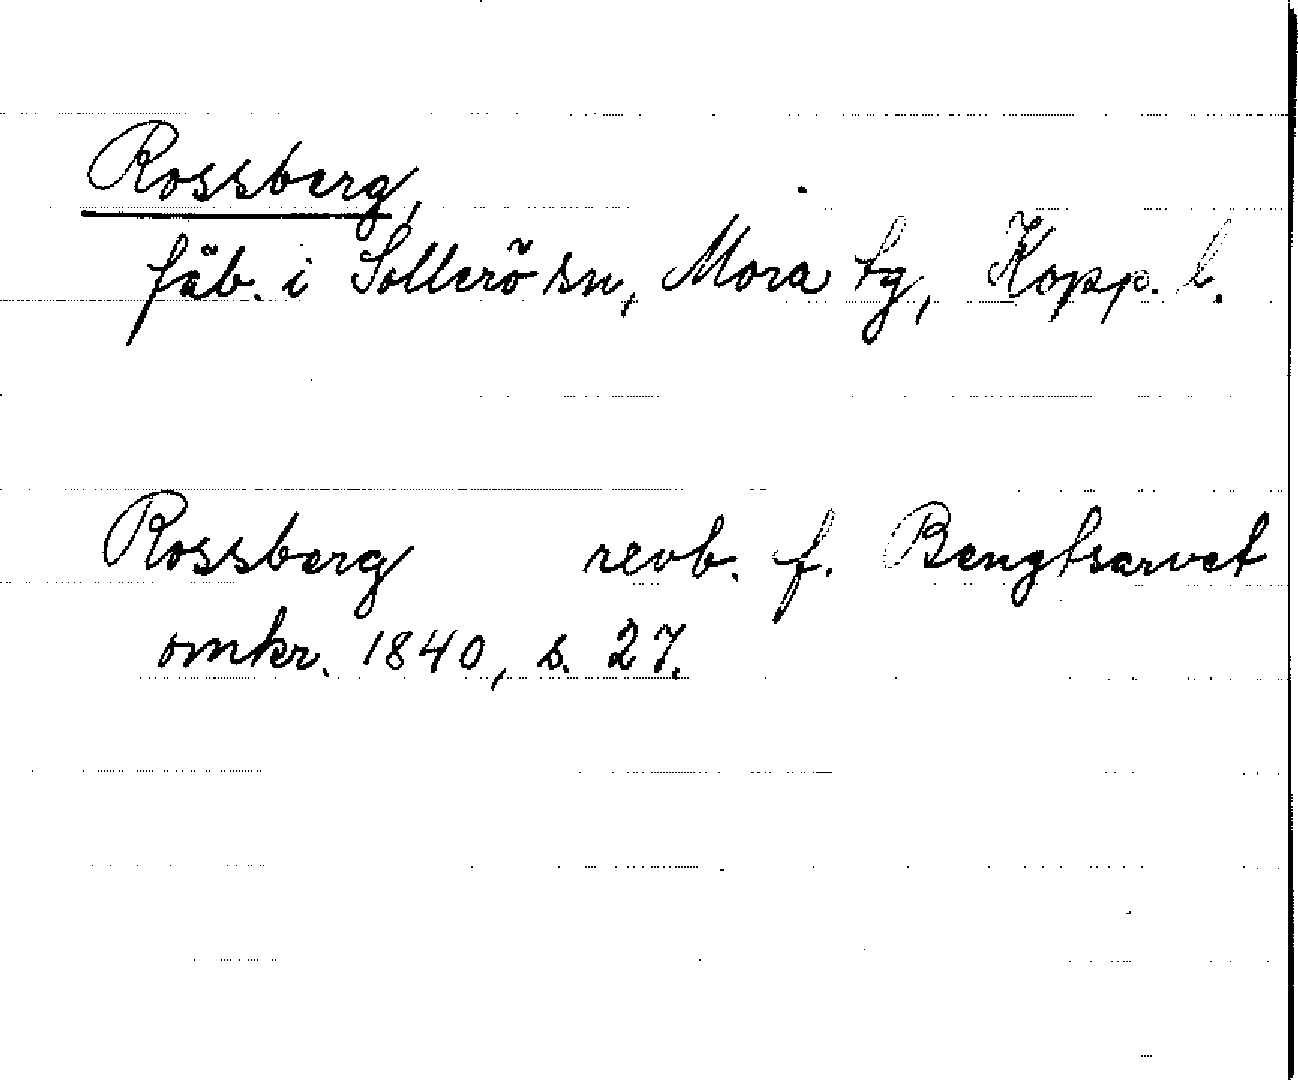 Rossberg,
fäb. i Sollerö sn, Mora tg, Kopp. l.
Rossberg revb. f. Bengtsarvet
omkr. 1840, s. 27.